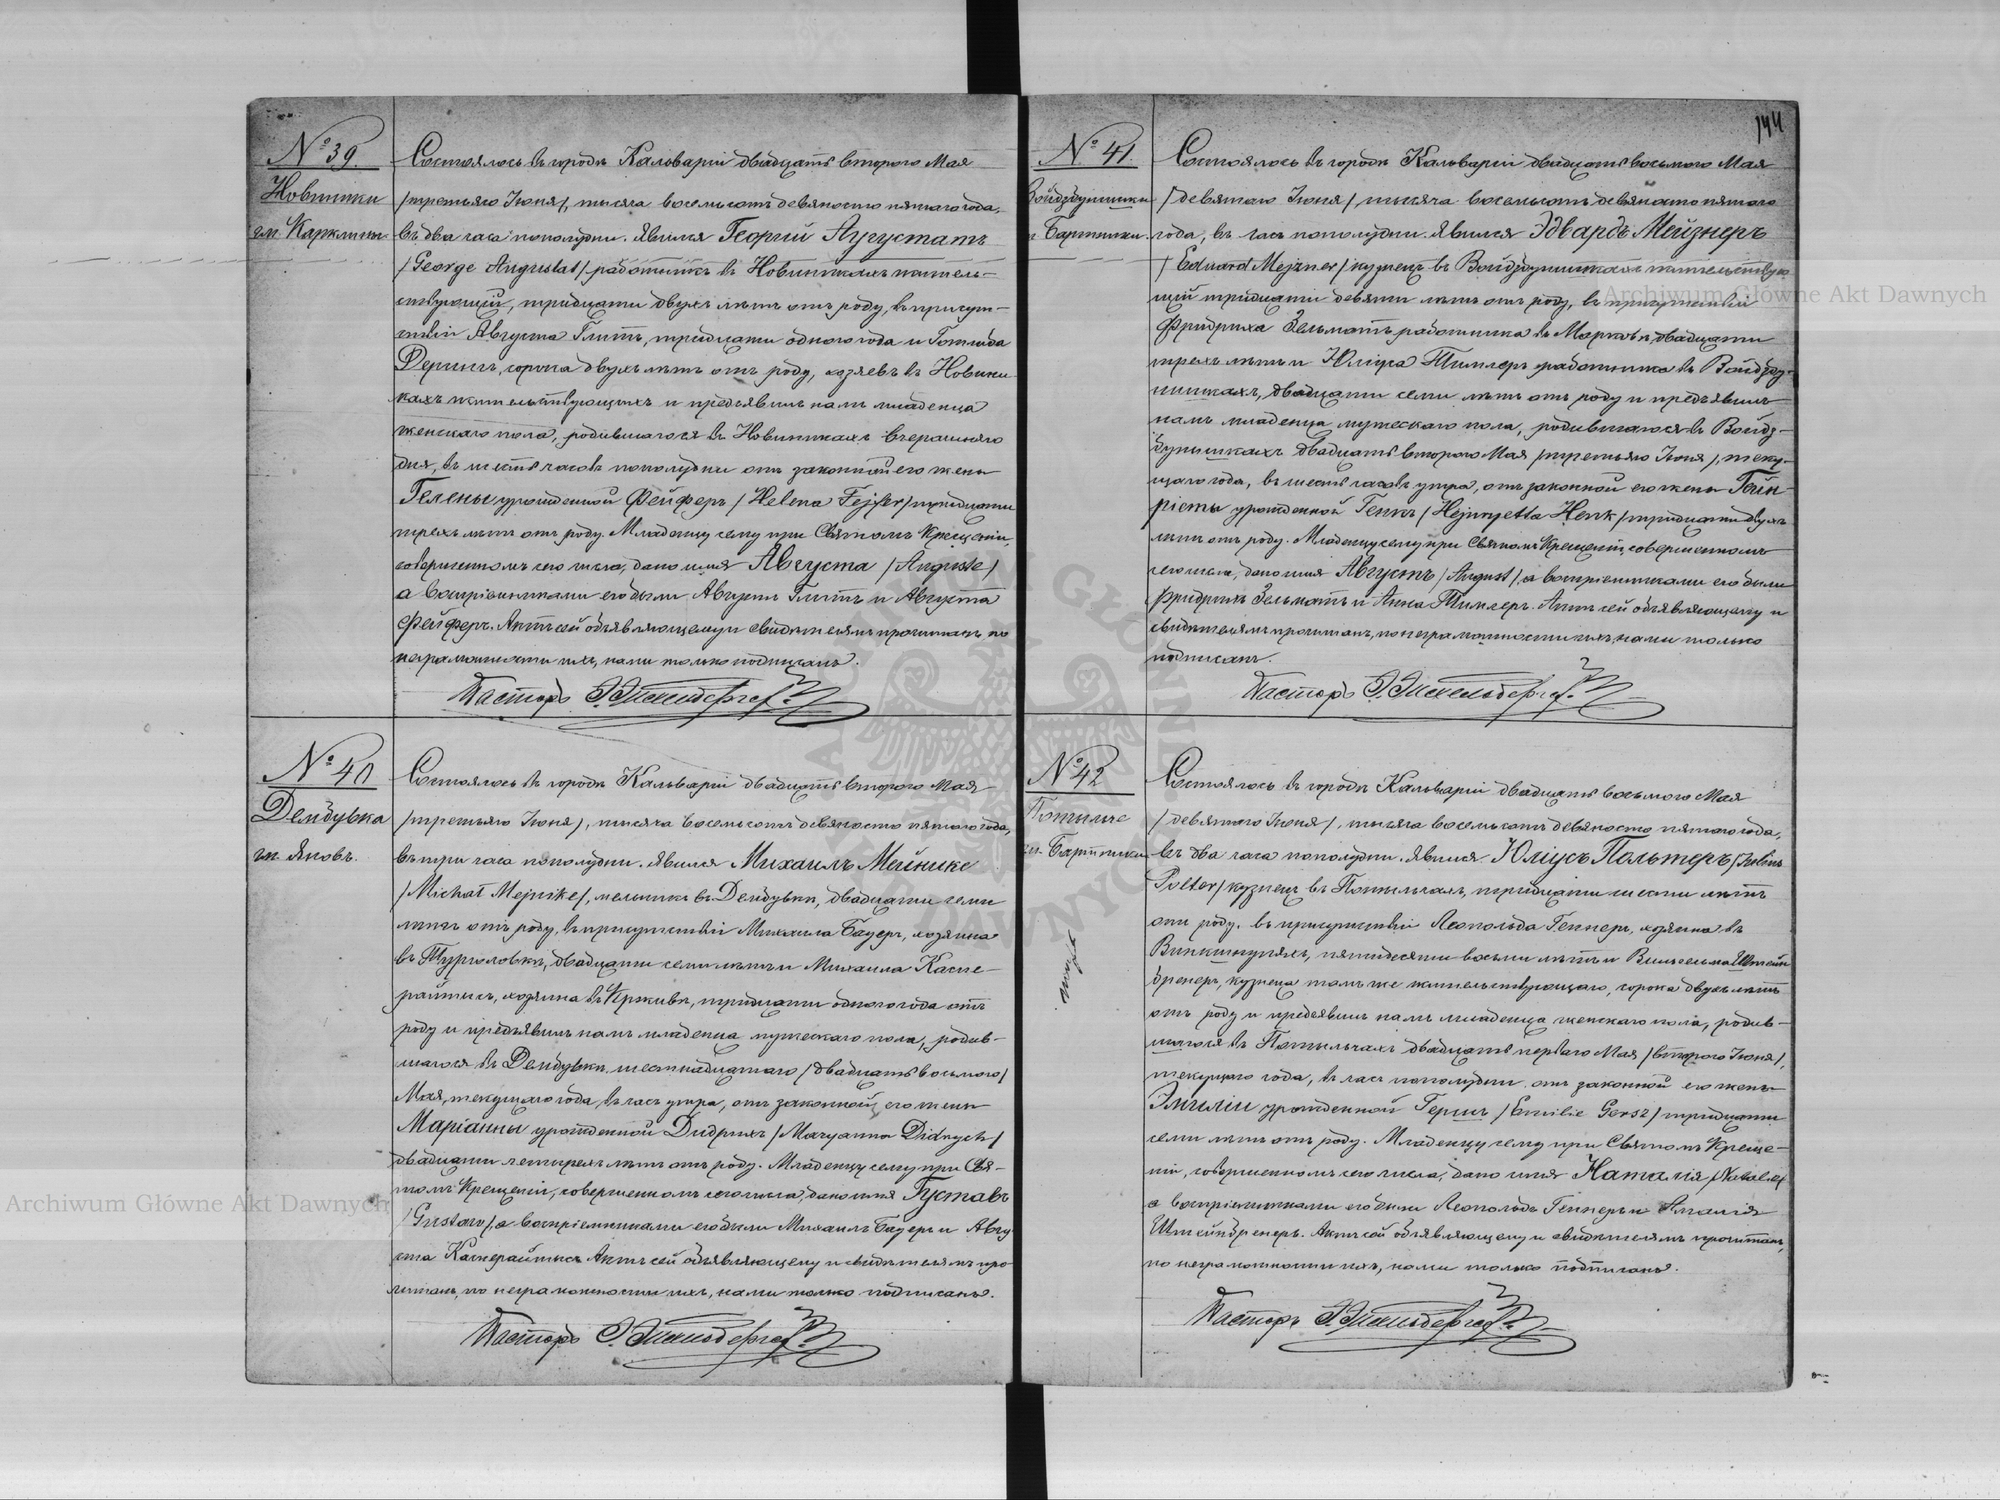 № 39.
Новинки
гм. Карклины.
Состоялось въ городѣ Кальваріи двадцать втораго Мая
/третьяго Іюня/, тысяча восемьсотъ девяносто пятаго года,
въ два часа пополудни. Явился Георгій Аугустатъ
/George Augustat/ работникъ въ Новинкахъ житель-
ствующій, тридцати двухъ лѣтъ отъ роду, въ присут-
ствіи Августа Глитъ, тридцати одного года и Готлиба
Дерингъ, сорока двухъ лѣтъ отъ роду, хозяевъ въ Новин-
кахъ жительствующихъ и предъявилъ намъ младенца
женскаго пола, родившагося въ Новинкахъ вчерашняго
дня, въ шесть часовъ пополудни отъ законной его жены
Гелены урожденной Фейферъ /Helena Fejfer/ тридцати
трехъ лѣтъ отъ роду. Младенцу сему при Святомъ Крещеніи,
совершенномъ сего числа, дано имя Августа /Auguste/
а воспріемниками его были Августъ Глитъ и Августа
Фейферъ. Актъ сей объявляющему и свидѣтелямъ прочитанъ, по
неграмотности ихъ, нами только подписанъ.
Пасторъ
№ 40
Дембувка
гм. Яновъ.
Состоялось въ городѣ Кальваріи двадцать втораго Мая
/третьяго Іюня/, тысяча восемьсотъ девяносто пятаго года,
въ три часа пополудни. Явился Михаилъ Мейнике
/Michał Mejnike/, мельникъ въ Дембувкѣ, двадцати семи
лѣтъ отъ роду, въ присутствіи Михаила Бауеръ, хозяина
въ Турголовкѣ, двадцати семи лѣтъ и Михаила Каспе-
райтысъ, хозяина въ Крживѣ, тридцати одного года отъ
роду и предъявилъ намъ младенца мужескаго пола, родив-
шагося въ Дембувкѣ, шестнадцатаго /двадцать восьмого/
Мая, текущаго года, въ часъ утра, отъ законной его жены
Маріанны урожденной Дидрихъ /Maryanna Didrych/
двадцати четырехъ лѣтъ отъ роду. Младенцу сему при Свя-
томъ Крещеніи, совершенномъ сего числа, дано имя Густавъ
/Gustaw/, а воспріемниками его были Михаилъ Бауеръ и Авгу-
ста Касперайтысъ. Актъ сей объявляющему и свидѣтелямъ про-
читанъ, по неграмотности ихъ, нами только подписанъ.
Пасторъ
144
№ 41.
Войздзунишки
Бартники.
Состоялось въ городѣ Кальваріи двадцать восьмого Мая
/девятаго Іюня/ тысяча восемьсотъ девяносто пятаго
года, въ часъ пополудни. Явился Эдвардъ Мейзнеръ
/Eduard Mejzner/ кузнецъ въ жительствую-
щій тридцати девяти лѣтъ отъ роду, въ присутствіи
Фридриха Зельматъ работника въ двадцати
трехъ лѣтъ и Юліуса Тимлеръ работника въ
двадцати семи лѣтъ отъ роду и предъявилъ
намъ младенца мужескаго пола, родившагося въ
двадцать втораго Мая /третьяго Іюня/, теку-
щаго года, въ шесть часовъ утра, отъ законной его жены Гейн-
ріеты урожденной Генкъ /Hejnryetta Henk/ тридцати двухъ
лѣтъ отъ роду. Младенцу сему при Святомъ Крещеніи, совершенномъ
сего числа, дано имя Августъ /August/, а воспріемниками его были
Фридрихъ Зельматъ и Анна Тимлеръ. Актъ сей объявляющему и
свидѣтелямъ прочитанъ, по неграмотности ихъ, нами только
подписанъ.
Пасторъ
№ 42
гм. Бартники
Состоялось въ городѣ Кальваріи двадцать восьмого Мая
/девятаго Іюня/, тысяча восемьсотъ девяносто пятаго года,
въ два часа пополудни. Явился Юліусъ Польтеръ /Julius
Polter/ кузнецъ въ тридцати шести лѣтъ
отъ роду, въ присутствіи Леопольда Геннеръ, хозяина въ
пятидесяти восьми лѣтъ и Вильгельма Штейн-
бренеръ, кузнеца тамъ же жительствующаго, сорока двухъ лѣтъ
отъ роду и предъявилъ намъ младенца женскаго пола, родив-
шагося въ двадцать перваго Мая /втораго Іюня/,
текущаго года, въ часъ пополудни, отъ законной его жены
Эмиліи урожденной Гершъ /Emilie Gersz/ тридцати
семи лѣтъ отъ роду. Младенцу сему при Святомъ Креще-
ніи, совершенномъ сего числа, дано имя Наталія /Natalie/
а воспріемниками его были Леопольдъ Геннеръ и Амалія
Штейнбренеръ. Актъ сей объявляющему и свидѣтелямъ прочитанъ,
по неграмотности ихъ, нами только подписанъ.
Пасторъ
Archiwum Główne Akt Dawnych
Archiwum Główne Akt Dawnych